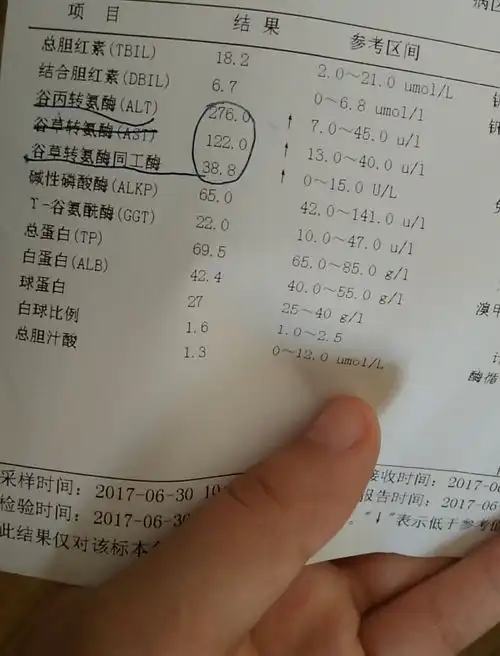 项 目 结 果 参考区间 病区
总胆红素(TBIL) 18.2 2.0～21.0 umol/L
结合胆红素(DBIL) 6.7 0～6.8 umol/l
谷丙转氨酶(ALT) 276.0 ↑ 7.0～45.0 u/l
谷草转氨酶(AST) 122.0 ↑ 13.0～40.0 u/l
谷草转氨酶同工酶 38.8 ↑ 0～15.0 U/L
碱性磷酸酶(ALKP) 65.0 42.0～141.0 u/l
T-谷氨酰酶(GGT) 22.0 10.0～47.0 u/l
总蛋白(TP) 69.5 65.0～85.0 g/l
白蛋白(ALB) 42.4 40.0～55.0 g/l
球蛋白 27 25～40 g/l
白球比例 1.6 1.0～2.5
总胆汁酸 1.3 0～12.0 umol/L
酶循
采样时间: 2017-06-30 接收时间: 2017-06
检验时间: 2017-06-30 报告时间: 2017-06
此结果仅对该标本 。"↓"表示低于参考值